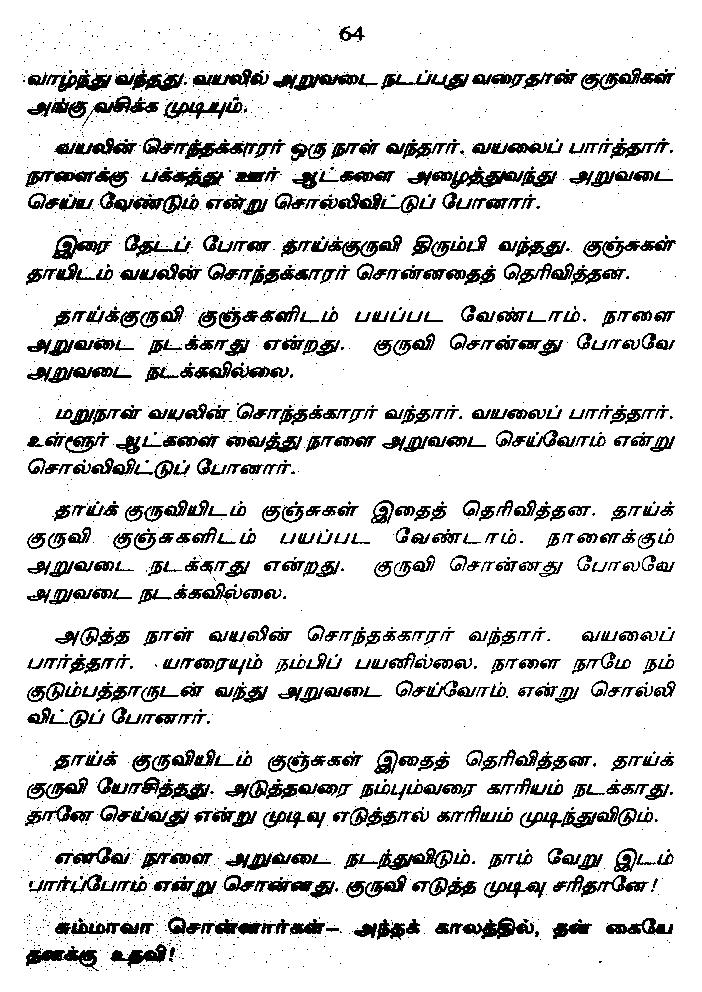 64
வாழ்ந்து வந்தது. வயலில் அறுவடை நடப்பது வரைதான் குருவிகள்
அங்கு வசிக்க முடியும்.
வயலின் சொந்தக்காரர் ஒரு நாள் வந்தார். வயலைப் பார்த்தார்.
நாளைக்கு பக்கத்து ஊர் ஆட்களை அழைத்துவந்து அறுவடை
செய்ய வேண்டும் என்று சொல்லிவிட்டுப் போனார்.
இரை தேடப் போன தாய்க்குருவி திரும்பி வந்தது. குஞ்சுகள்
தாயிடம் வயலின் சொந்தக்காரர் சொன்னதைத் தெரிவித்தன.
தாய்க்குருவி குஞ்சுகளிடம் பயப்பட வேண்டாம். நாளை
அறுவடை நடக்காது என்றது. குருவி சொன்னது போலவே
அறுவடை நடக்கவில்லை.
மறுநாள் வயலின் சொந்தக்காரர் வந்தார். வயலைப் பார்த்தார்.
உள்ளூர் ஆட்களை வைத்து நாளை அறுவடை செய்வோம் என்று
சொல்லிவிட்டுப் போனார்.
தாய்க் குருவியிடம் குஞ்சுகள் இதைத் தெரிவித்தன. தாய்க்
குருவி குஞ்சுகளிடம் பயப்பட வேண்டாம். நாளைக்கும்
அறுவடை நடக்காது என்றது. குருவி சொன்னது போலவே
அறுவடை நடக்கவில்லை.
அடுத்த நாள் வயலின் சொந்தக்காரர் வந்தார். வயலைப்
பார்த்தார். யாரையும் நம்பிப் பயனில்லை. நாளை நாமே நம்
குடும்பத்தாருடன் வந்து அறுவடை செய்வோம் என்று சொல்லி
விட்டுப் போனார்.
தாய்க் குருவியிடம் குஞ்சுகள் இதைத் தெரிவித்தன. தாய்க்
குருவி யோசித்தது. அடுத்தவரை நம்பும்வரை காரியம் நடக்காது.
தானே செய்வது என்று முடிவு எடுத்தால் காரியம் முடிந்துவிடும்.
எனவே நாளை அறுவடை நடந்துவிடும். நாம் வேறு இடம்
பார்ப்போம் என்று சொன்னது. குருவி எடுத்த முடிவு சரிதானே!
சும்மாவா சொன்னார்கள்– அந்தக் காலத்தில், தன் கையே
தனக்கு உதவி!